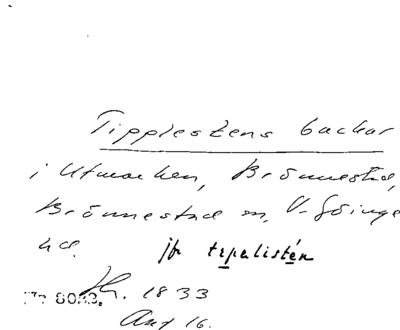 Tipplestens backar
i Utmarken, Brönnestad,
Brönnestad sn, V. Göinge
hd. jfr tepalistén
8033. 1833
Ant 16.